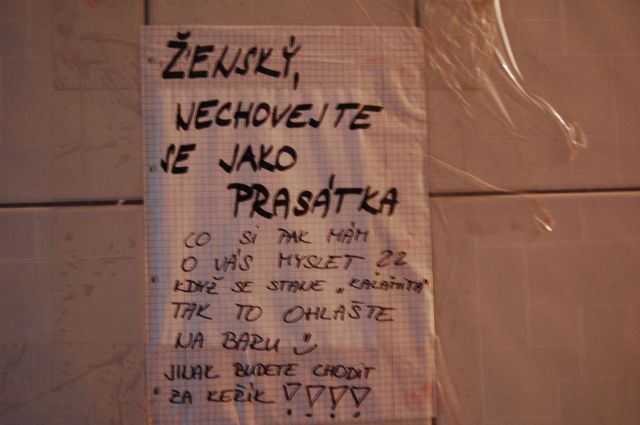 ŽENSKÝ,
NECHOVEJTE
SE JAKO
PRASÁTKA
CO SI PAK MÁM
O VÁS MYSLET ??
KDYŽ SE STANE „KALAMITA"
TAK TO OHLAŠTE
NA BARU
JINAK BUDETE CHODIT
ZA KEŘÍK !!!!